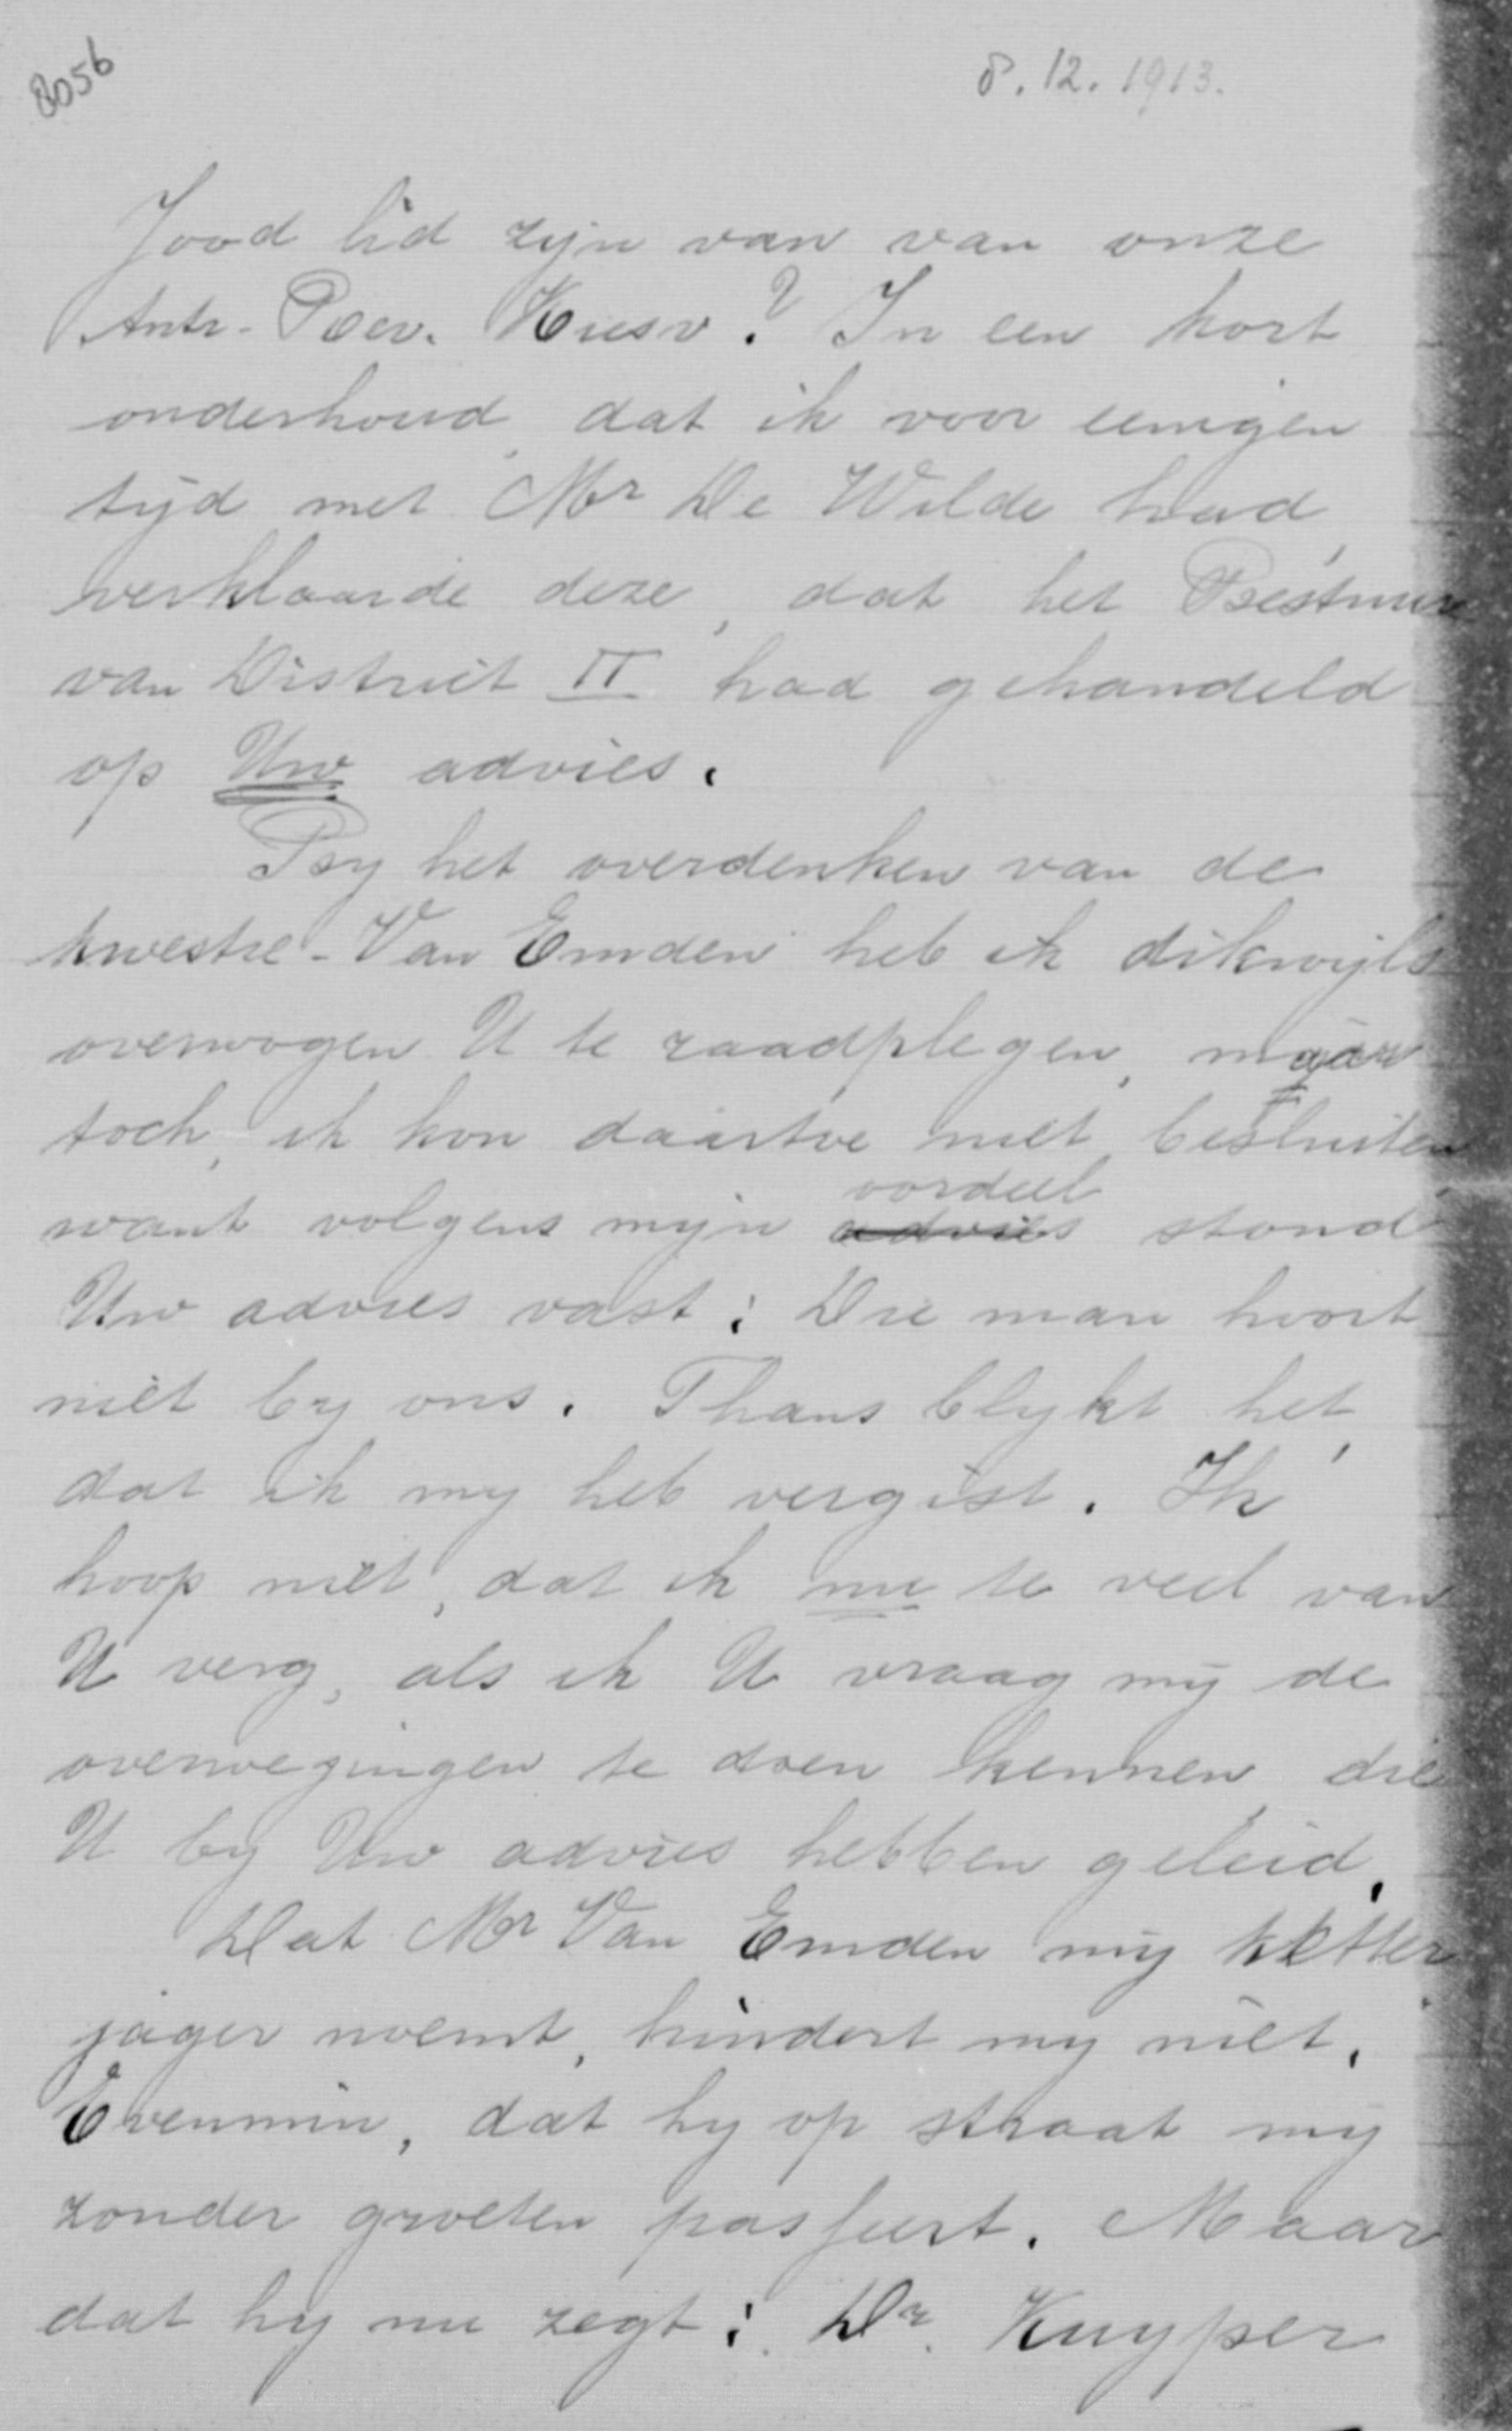 8056
8.12.1913.
Jood lid zijn van van onze
Anti-Rev. Kiesv.? In een kort
onderhoud, dat ik voor eenigen
tijd met Mr De Wilde had,
verklaarde deze, dat het Bestuur
van District II had gehandeld
op Uw advies.
By het overdenken van de
kwestie-Van Emden heb ik dikwijls
overwogen U te raadplegen, maar
toch, ik kon daartoe niet besluiten
oordeel
want volgens mijn advies stond
Uw advies vast: Die man hoort
niet by ons. Thans blykt het,
dat ik my heb vergist. Ik
hoop niet, dat ik nu te veel van
U verg, als ik U vraag mij de
overwegingen te doen kennen, die
U by Uw advies hebben geleid.
Dat Mr Van Emden mij ketter
jager noemt, hindert my niet.
Evenmin, dat hy op straat mij
zonder groeten passeert. Maar
dat hy nu zegt: Dr. Kuyper